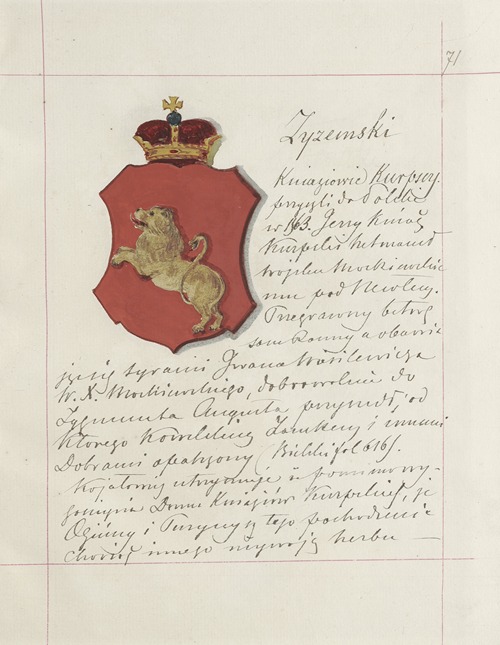 71
Zyzemski
Kniaziowie Kurpscy
przyszli do Polski
w 1563. Jerzy Kniaź
Kurpski hetmanił
wojsku Moskiewskie
mu pod Newlem.
Przegrawszy bitwę
sam Ranny a obawia
jąc się tyranii Iwana Wasilewicza
W. X. Moskiewskiego, dobrowolnie do
Zygmunta Augusta przyszedł, od
Ktorego Kowelską Zamkem i innemi
Dobrami opatrzony (Bielski fol 616).
Kojałowicz utrzymuje
Domu Kniaziów Kurpskich, że
Oginscy i tego pochodzenia
chociaż innego używają herbu —